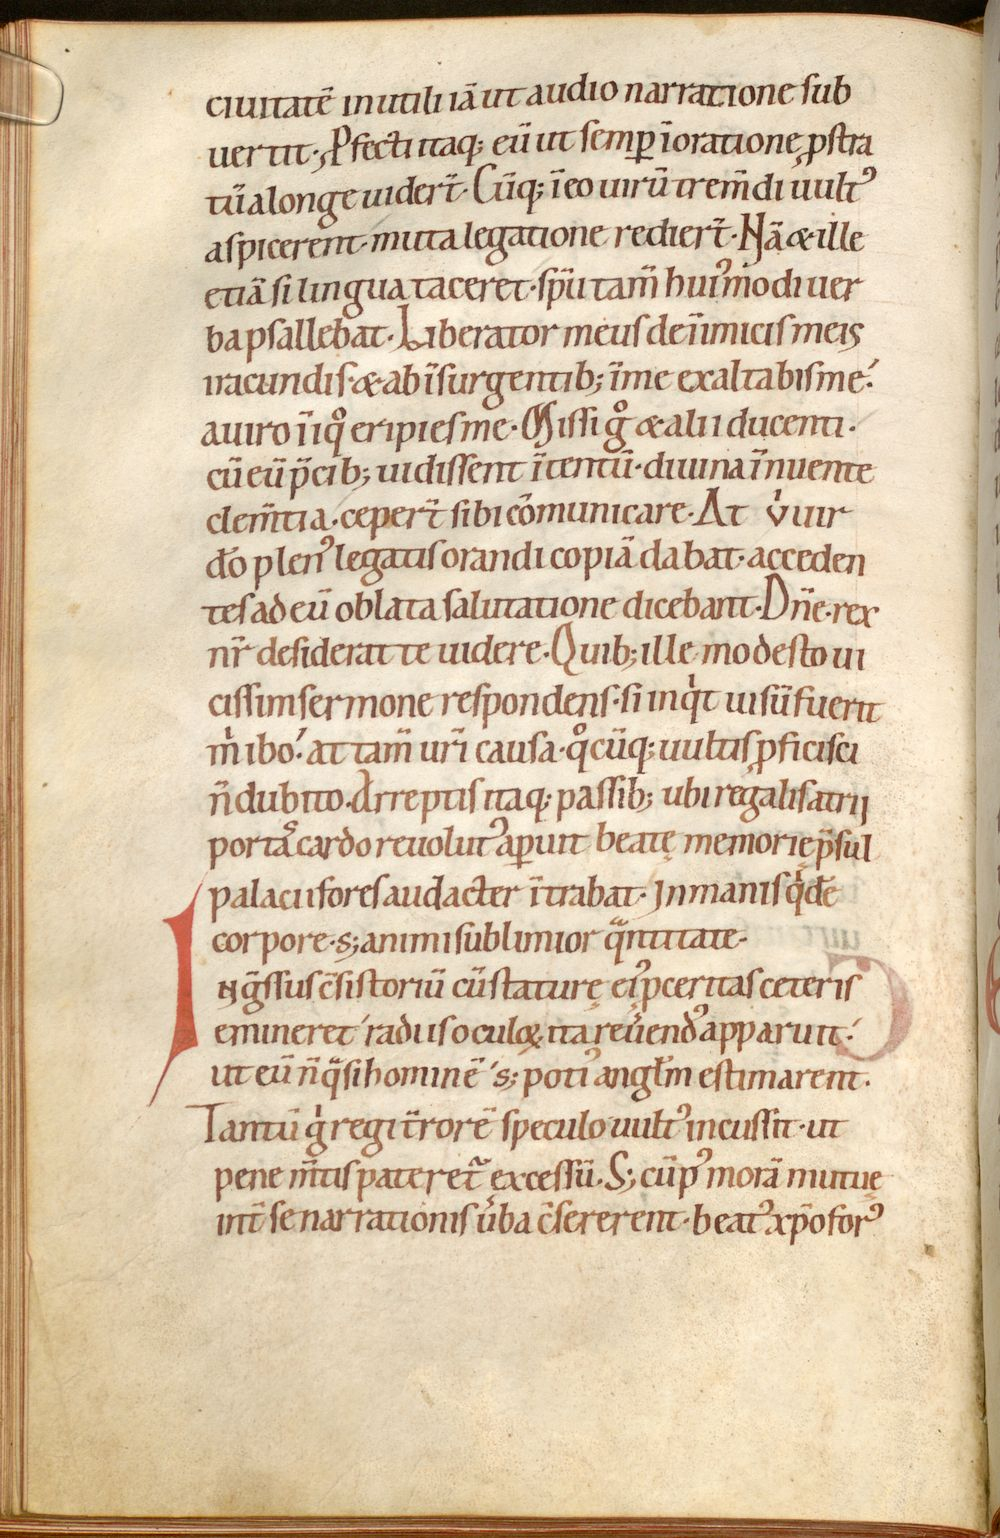 ciuitatē inutili iā ut audio narratione sub
uertit· Pfecti itaq; eū ut semꝑ īoratione ꝓstra
tū a longe uider̄t· Cūq; īeo uirū trem̄di uultꝰ
aspicerent· muta legatione redier̄t· Nā & ille
etiā si lingua taceret· sp̄u tam̄ huiꝰmodi uer
ba psallebat· Liberator meus de inimicis meis
iracundis· & ab īsurgentib; īme exaltabis me·
a uiro īiqͦ eripies me· Missi gͦ & alii ducenti·
cū eū p̄cib; uidissent ītentū· diuina īnuente
clem̄tia· ceper̄t sibi cōmunicare· At ů uir
dō plenꝰ legatis orandi copiā dabat· acceden
tes ad eū oblata salutatione dicebant· Dn̄e· rex
nr̄ desiderat te uidere· Quib; ille modesto ui
cissim sermone respondens· si inqͥt uisū fuerit
mͥ ibo· at tam̄ uri causa· qͦcūq; uultis ꝓficisci
n̄ dubito· Arreptis itaq; passib; ubi regalis atrii
portā cardo reuolutꝰ aꝑuit beatę memorię p̄sul
palacii fores audacter ītrabat· Inmanis qͥdē
corpore· s; animi sublimior qͣntitate·
Ingͣssus c̄sistoriū cū staturę eiꝰ ꝓceritas ceteris
emineret radiis oculoꝝ ita reůendꝰ apparuit·
ut eū n̄ qͣsi hominē s; potiꝰ angłm estimarent·
Tantū gͥ regi t̄rorē speculo uultꝰ incussit· ut
pene m̄tis pateret᷑ excessū· S; cū pꝰ morā mutuę
int̄ se narrationis ůba c̄sererent· beatꝰ xp̄oforꝰ